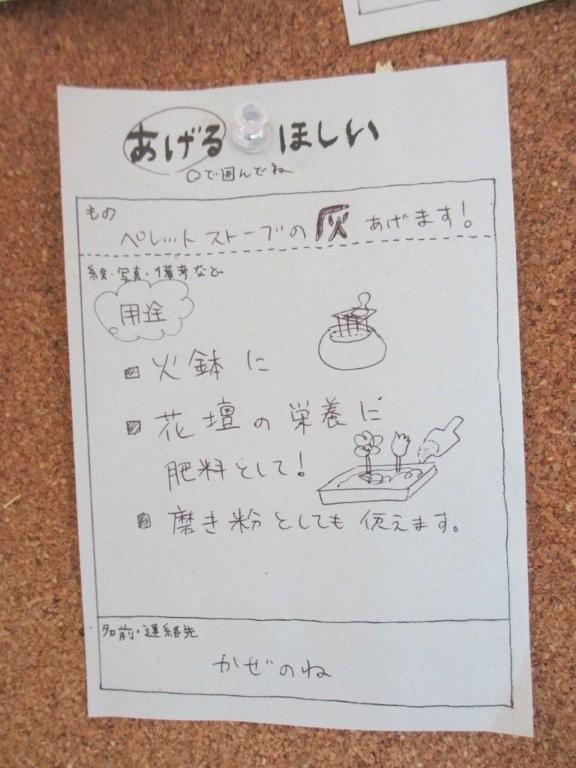 あげる ほしい
○で囲んでね
もの
ペレットストーブの灰あげます!
絵・写真・備考など
用途
火鉢に
花壇の栄養に
肥料として!
磨き粉としても使えます。
名前・連絡先
かぜのね